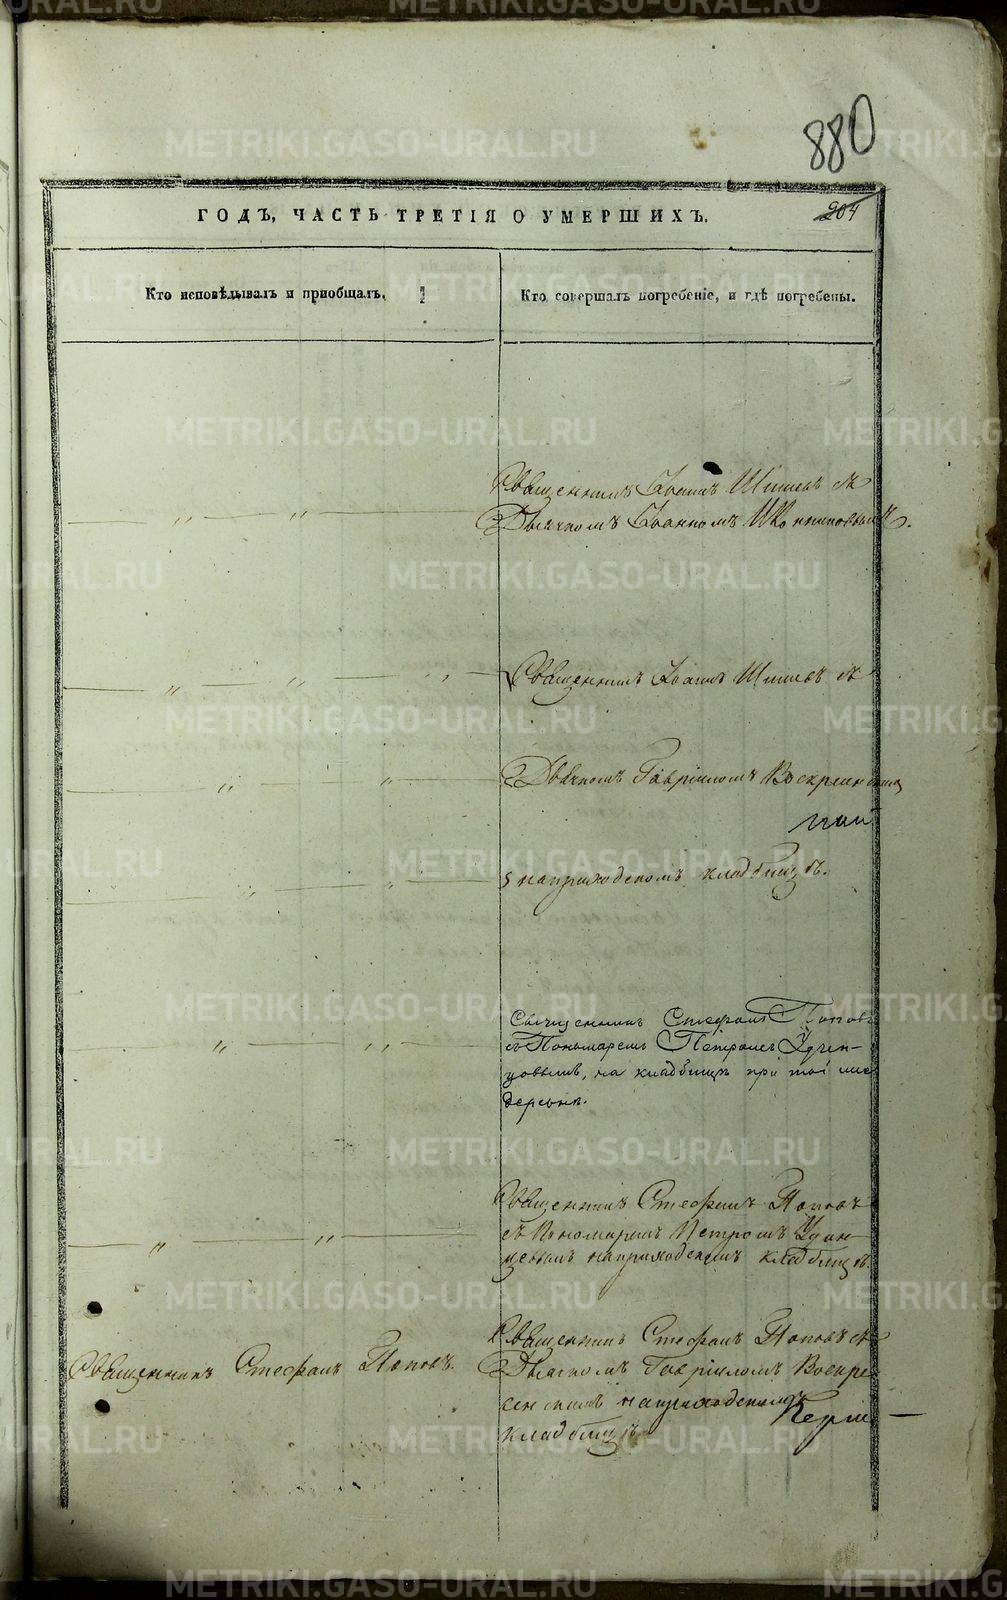 880
204
ГОДЪ, ЧАСТЬ ТРЕТІЯ О УМЕРШИХЪ.
Кто исповѣдывалъ и пріобщалъ.
Кто совершалъ погребеніе, и гдѣ погребены.
Священникъ Іоаннъ Шишевъ съ
Дьячкомъ Іоанномъ
Священникъ Іоаннъ Шишевъ съ
Дьячкомъ Гавріиломъ Воскресенск
на приходскомъ кладбищѣ.
Священникъ Стефанъ Поповъ
съ Пономаремъ Петромъ Удин-
цовымъ, на кладбищѣ при той же
деревнѣ.
Священникъ Стефанъ Поповъ
съ Пономаремъ Петромъ Удин-
цевымъ на приходскомъ кладбищѣ.
Священникъ Стефанъ Поповъ.
Священникъ Стефанъ Поповъ съ
Дьячкомъ Гавріиломъ Воскре-
сенскимъ на приходскомъ
кладбищѣ
METRIKI.GASO-URAL.RU